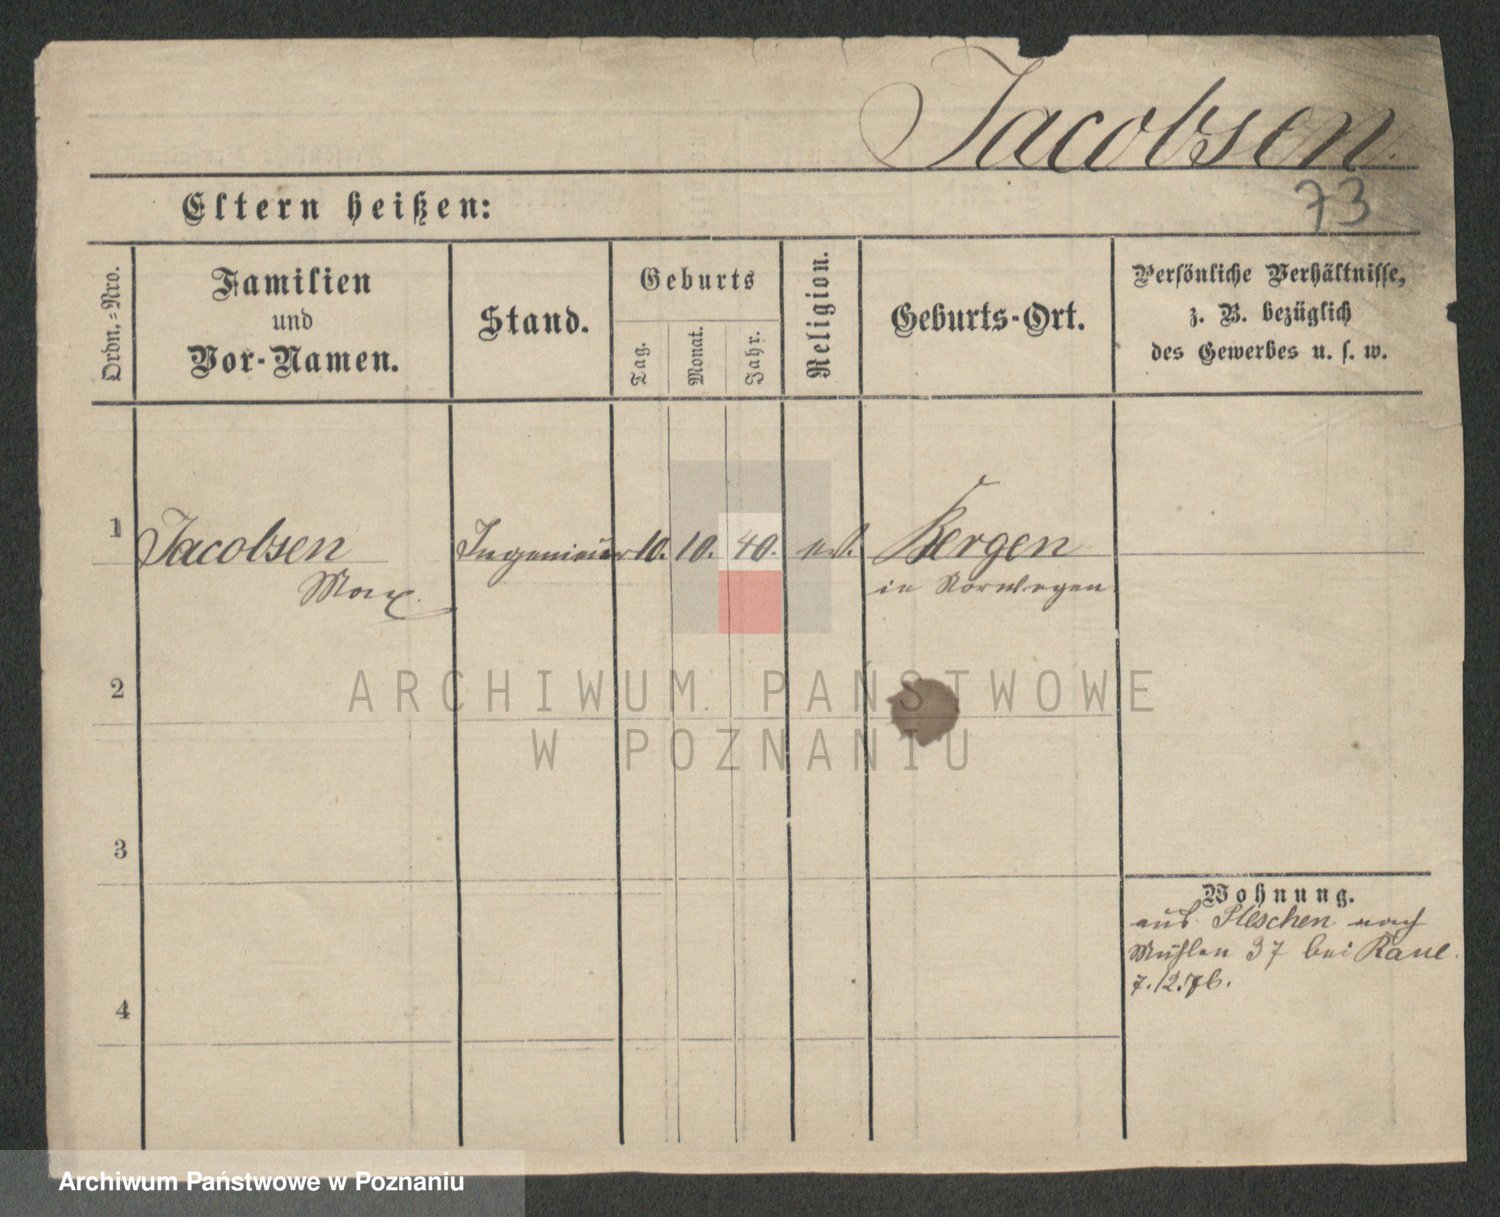 Jacobsen.
73
Eltern heißen:
Ordn.=Nro.
Familien
und
Vor-Namen.
Stand.
Geburts
Tag.
Monat.
Jahr.
Religion.
Geburts-Ort.
Persönliche Verhältnisse,
z. B. bezüglich
des Gewerbes u. s. w.
1
Jacobsen
Max.
Ingenieur
10.
10.
40.
ev.
Bergen
in Norwegen
2
ARCHIWUM PAŃSTWOWE
W POZNANIU
3
Wohnung.
aus Pleschen nach
Mühlen 37 bei
7.12.76.
4
Archiwum Państwowe w Poznaniu